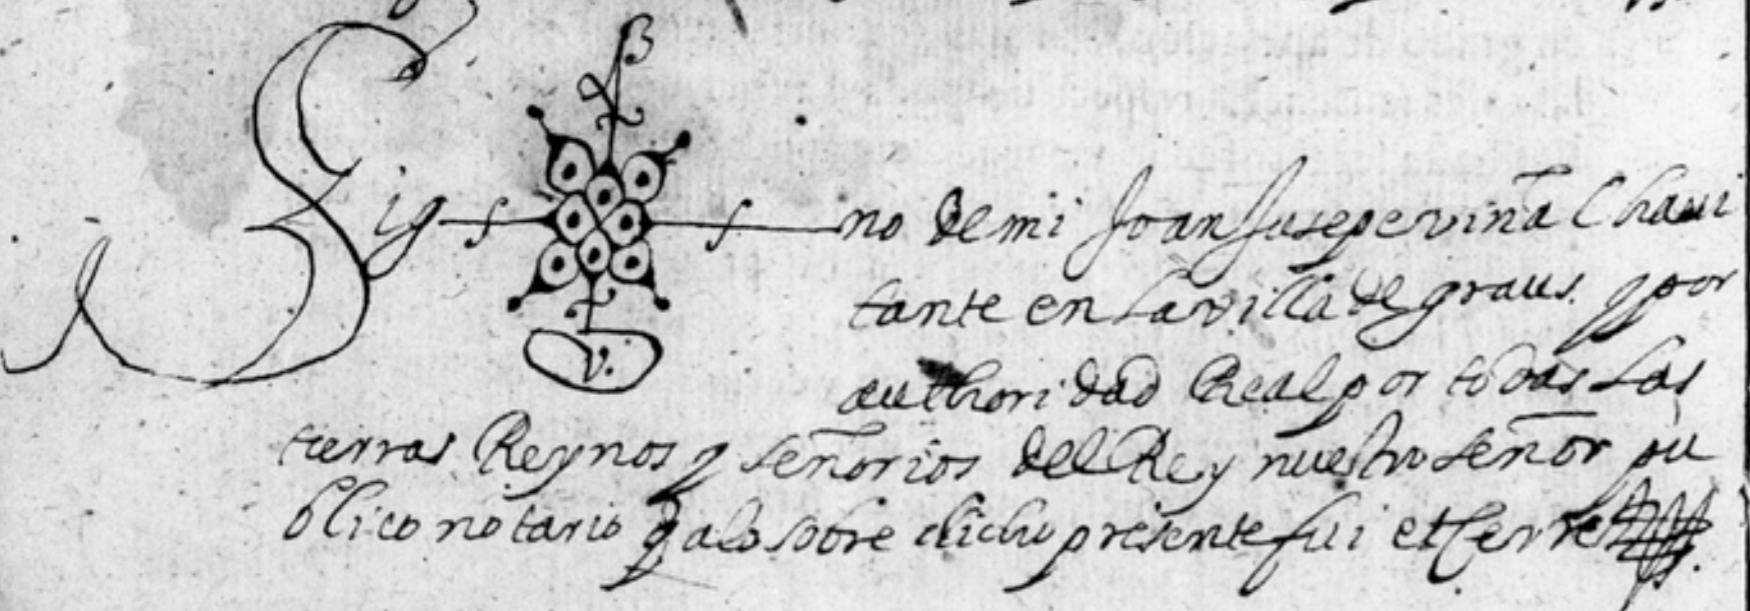 Sig no de mi Joan Jusepe viña Chaui
tante en la villa de graus. y por
authoridad Real por todas las
tierras Reynos y señorios del Rey nuestro señor pu
blico notario q a lo sobre dicho presente fui et cerre